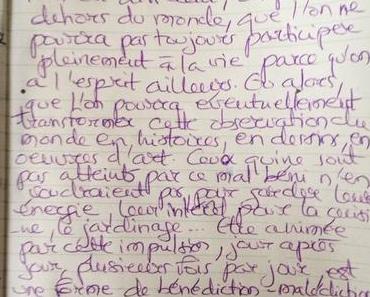 dehors du monde, que l'on ne
pourra pas toujours participer
pleinement à la vie parce qu'on
a l'esprit ailleurs. Et alors,
que l'on pourra éventuellement
transformer cette observation du
monde en histoires, en dessins, en
oeuvres d'art. Ceux qui ne sont
pas atteints par ce mal béni n'en
voudraient pas pour garder leur
énergie leur intérêt pour la cuisi
ne, le jardinage... Etre animée
par cette impulsion, jour après
jour, plusieurs fois par jour, est
une forme de bénédiction-malédiction